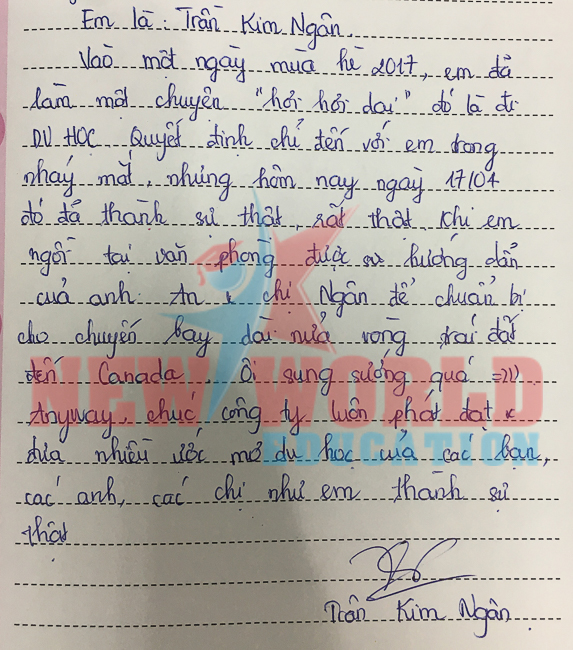 Em là : Trần Kim Ngân.
Vào một ngày mùa hè 2017, em đã
làm một chuyện "hơi hơi dại" đó là đi
DU HỌC Quyết định chỉ đến với em trong
nháy mắt, nhưng hôm nay ngày 17/07
đó đã thành sự thật, rất thật, khi em
ngồi tại văn phòng được sự hướng dẫn
của anh An & chị Ngân để chuẩn bị
cho chuyến bay dài nửa vòng trái đất
đến Canada. Ôi sung sướng quá =)))
Anyway, chúc công ty luôn phát đạt &
đưa nhiều ước mơ du học của các bạn,
các anh, các chị như em thành sự
thật
Trần Kim Ngân
NEW WORLD
EDUCATION